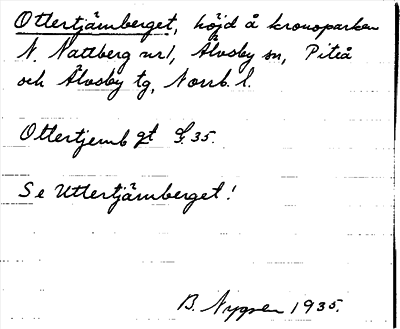 Ottertjärnberget, höjd å kronoparken
N. Nattberg nr 1, Älvsby sn, Piteå
och Älvsby tg, Norrb. l.
Ottertjernb gt G. 35.
Se Uttertjärnberget!
B. Nygren 1935.